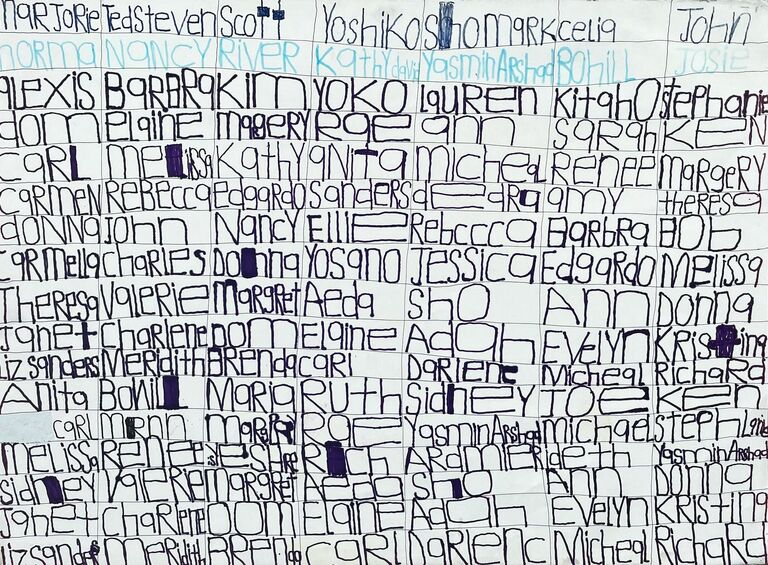 MARJORIE TedSteven Scott Yoshiko Sho mark celia John
norma NANCY RIVER Kathy david Yasmin Arshad BOhill JOSIE
aLEXIS BaRBRa KIM YOKO Lauren KitahO stephanie
dom eLaine mageRY Rae ann SaRah KEN
caRL meLissa Kathy anita micheal Renee maRgeRY
caRmeN ReBecca edgaRdo SandeRs deedRa amy theResa
doNNa John NancY ELLIE Rebccca BaRbRa BOb
caRmeLLa chaRLes DOnna Yosano JESSica EdgaRdo MeLissa
TheResa VaLeRie maRgRet Aeda ShO Ann DOnna
Janet chaRLene DOm ELaine Adah EveLyn KRisting
Liz sandeRs MeRidith BRenda caRl DaRLene Micheal RichaRd
Anita BOhiLL MaRia RUth Sidney JOE KEn
caRL maRgeRy ROE Yasmin ARshad michael steph
meLissa Renee Rich ARdmieR deth Yasmin ARshad
sidney VaLeRie maRgRet Aeda ShO Ann DOnna
Janet chaRLene DOm ELaine Adah EveLyn KRisting
Liz sandeRs MeRidith BRenda caRL DaRLenc Micheal RichaRd